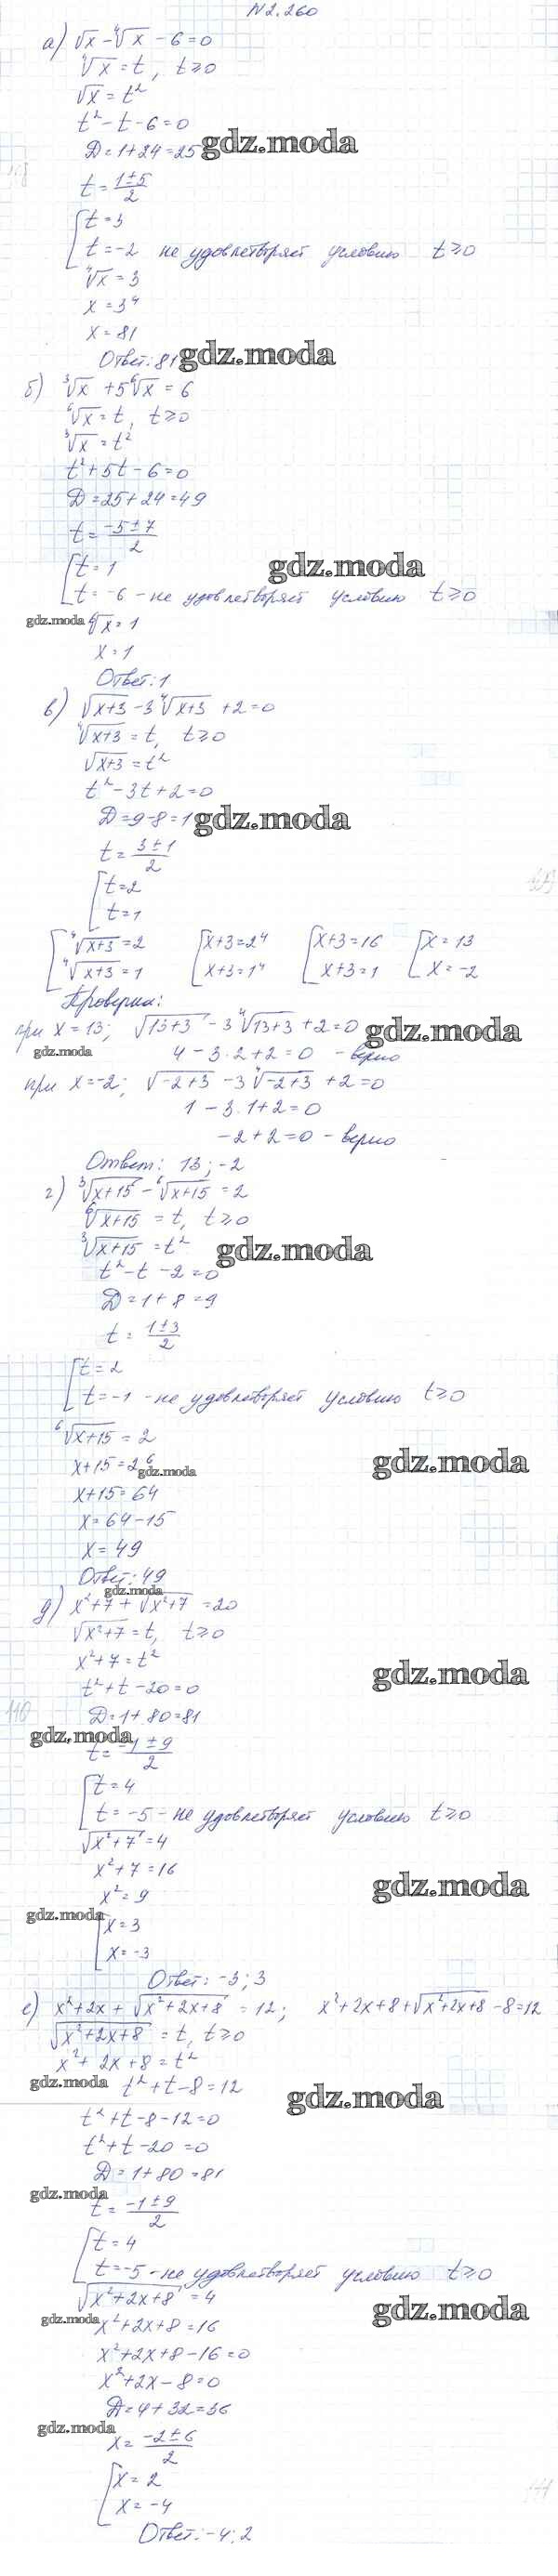 N2.260
а) √x - ⁴√x - 6 = 0
⁴√x = t, t ≥ 0
√x = t²
t² - t - 6 = 0
Д = 1 + 24 = 25 gdz.moda
t = (1 ± 5)/2
[t = 3
t = -2 не удовлетворяет условию t ≥ 0
⁴√x = 3
x = 3⁴
x = 81
Ответ: 81 gdz.moda
б) ³√x + 5⁶√x = 6
⁶√x = t, t ≥ 0
³√x = t²
t² + 5t - 6 = 0
Д = 25 + 24 = 49
t = (-5 ± 7)/2
[t = 1 gdz.moda
t = -6 - не удовлетворяет условию t ≥ 0
gdz.moda ⁶√x = 1
x = 1
Ответ: 1
в) √(x+3) - 3⁴√(x+3) + 2 = 0
⁴√(x+3) = t, t ≥ 0
√(x+3) = t²
t² - 3t + 2 = 0
Д = 9 - 8 = 1 gdz.moda
t = (3 ± 1)/2
[t = 2
t = 1
[⁴√(x+3) = 2 [x+3 = 2⁴ [x+3 = 16 [x = 13
⁴√(x+3) = 1 x+3 = 1⁴ x+3 = 1 x = -2
Проверка:
при x = 13; √(13+3) - 3⁴√(13+3) + 2 = 0 gdz.moda
gdz.moda 4 - 3·2 + 2 = 0 - верно
при x = -2; √(-2+3) - 3⁴√(-2+3) + 2 = 0
1 - 3·1 + 2 = 0
-2 + 2 = 0 - верно
Ответ: 13; -2
г) ³√(x+15) - ⁶√(x+15) = 2
⁶√(x+15) = t, t ≥ 0
³√(x+15) = t² gdz.moda
t² - t - 2 = 0
Д = 1 + 8 = 9
t = (1 ± 3)/2
[t = 2
t = -1 - не удовлетворяет условию t ≥ 0
⁶√(x+15) = 2
x + 15 = 2⁶ gdz.moda gdz.moda
x + 15 = 64
x = 64 - 15
x = 49
Ответ: 49
gdz.moda
д) x² + 7 + √(x²+7) = 20
√(x²+7) = t, t ≥ 0
x² + 7 = t² gdz.moda
t² + t - 20 = 0
Д = 1 + 80 = 81
gdz.moda
t = (-1 ± 9)/2
[t = 4
t = -5 - не удовлетворяет условию t ≥ 0
√(x²+7) = 4
x² + 7 = 16
x² = 9 gdz.moda
gdz.moda [x = 3
x = -3
Ответ: -3; 3
е) x² + 2x + √(x²+2x+8) = 12; x² + 2x + 8 + √(x²+2x+8) - 8 = 12
√(x²+2x+8) = t, t ≥ 0
x² + 2x + 8 = t²
gdz.moda t² + t - 8 = 12 gdz.moda
t² + t - 8 - 12 = 0
t² + t - 20 = 0
Д = 1 + 80 = 81
gdz.moda
t = (-1 ± 9)/2
[t = 4
t = -5 - не удовлетворяет условию t ≥ 0
√(x²+2x+8) = 4 gdz.moda
gdz.moda x² + 2x + 8 = 16
x² + 2x + 8 - 16 = 0
x² + 2x - 8 = 0
Д = 4 + 32 = 36
gdz.moda x = (-2 ± 6)/2
[x = 2
x = -4
Ответ: -4; 2